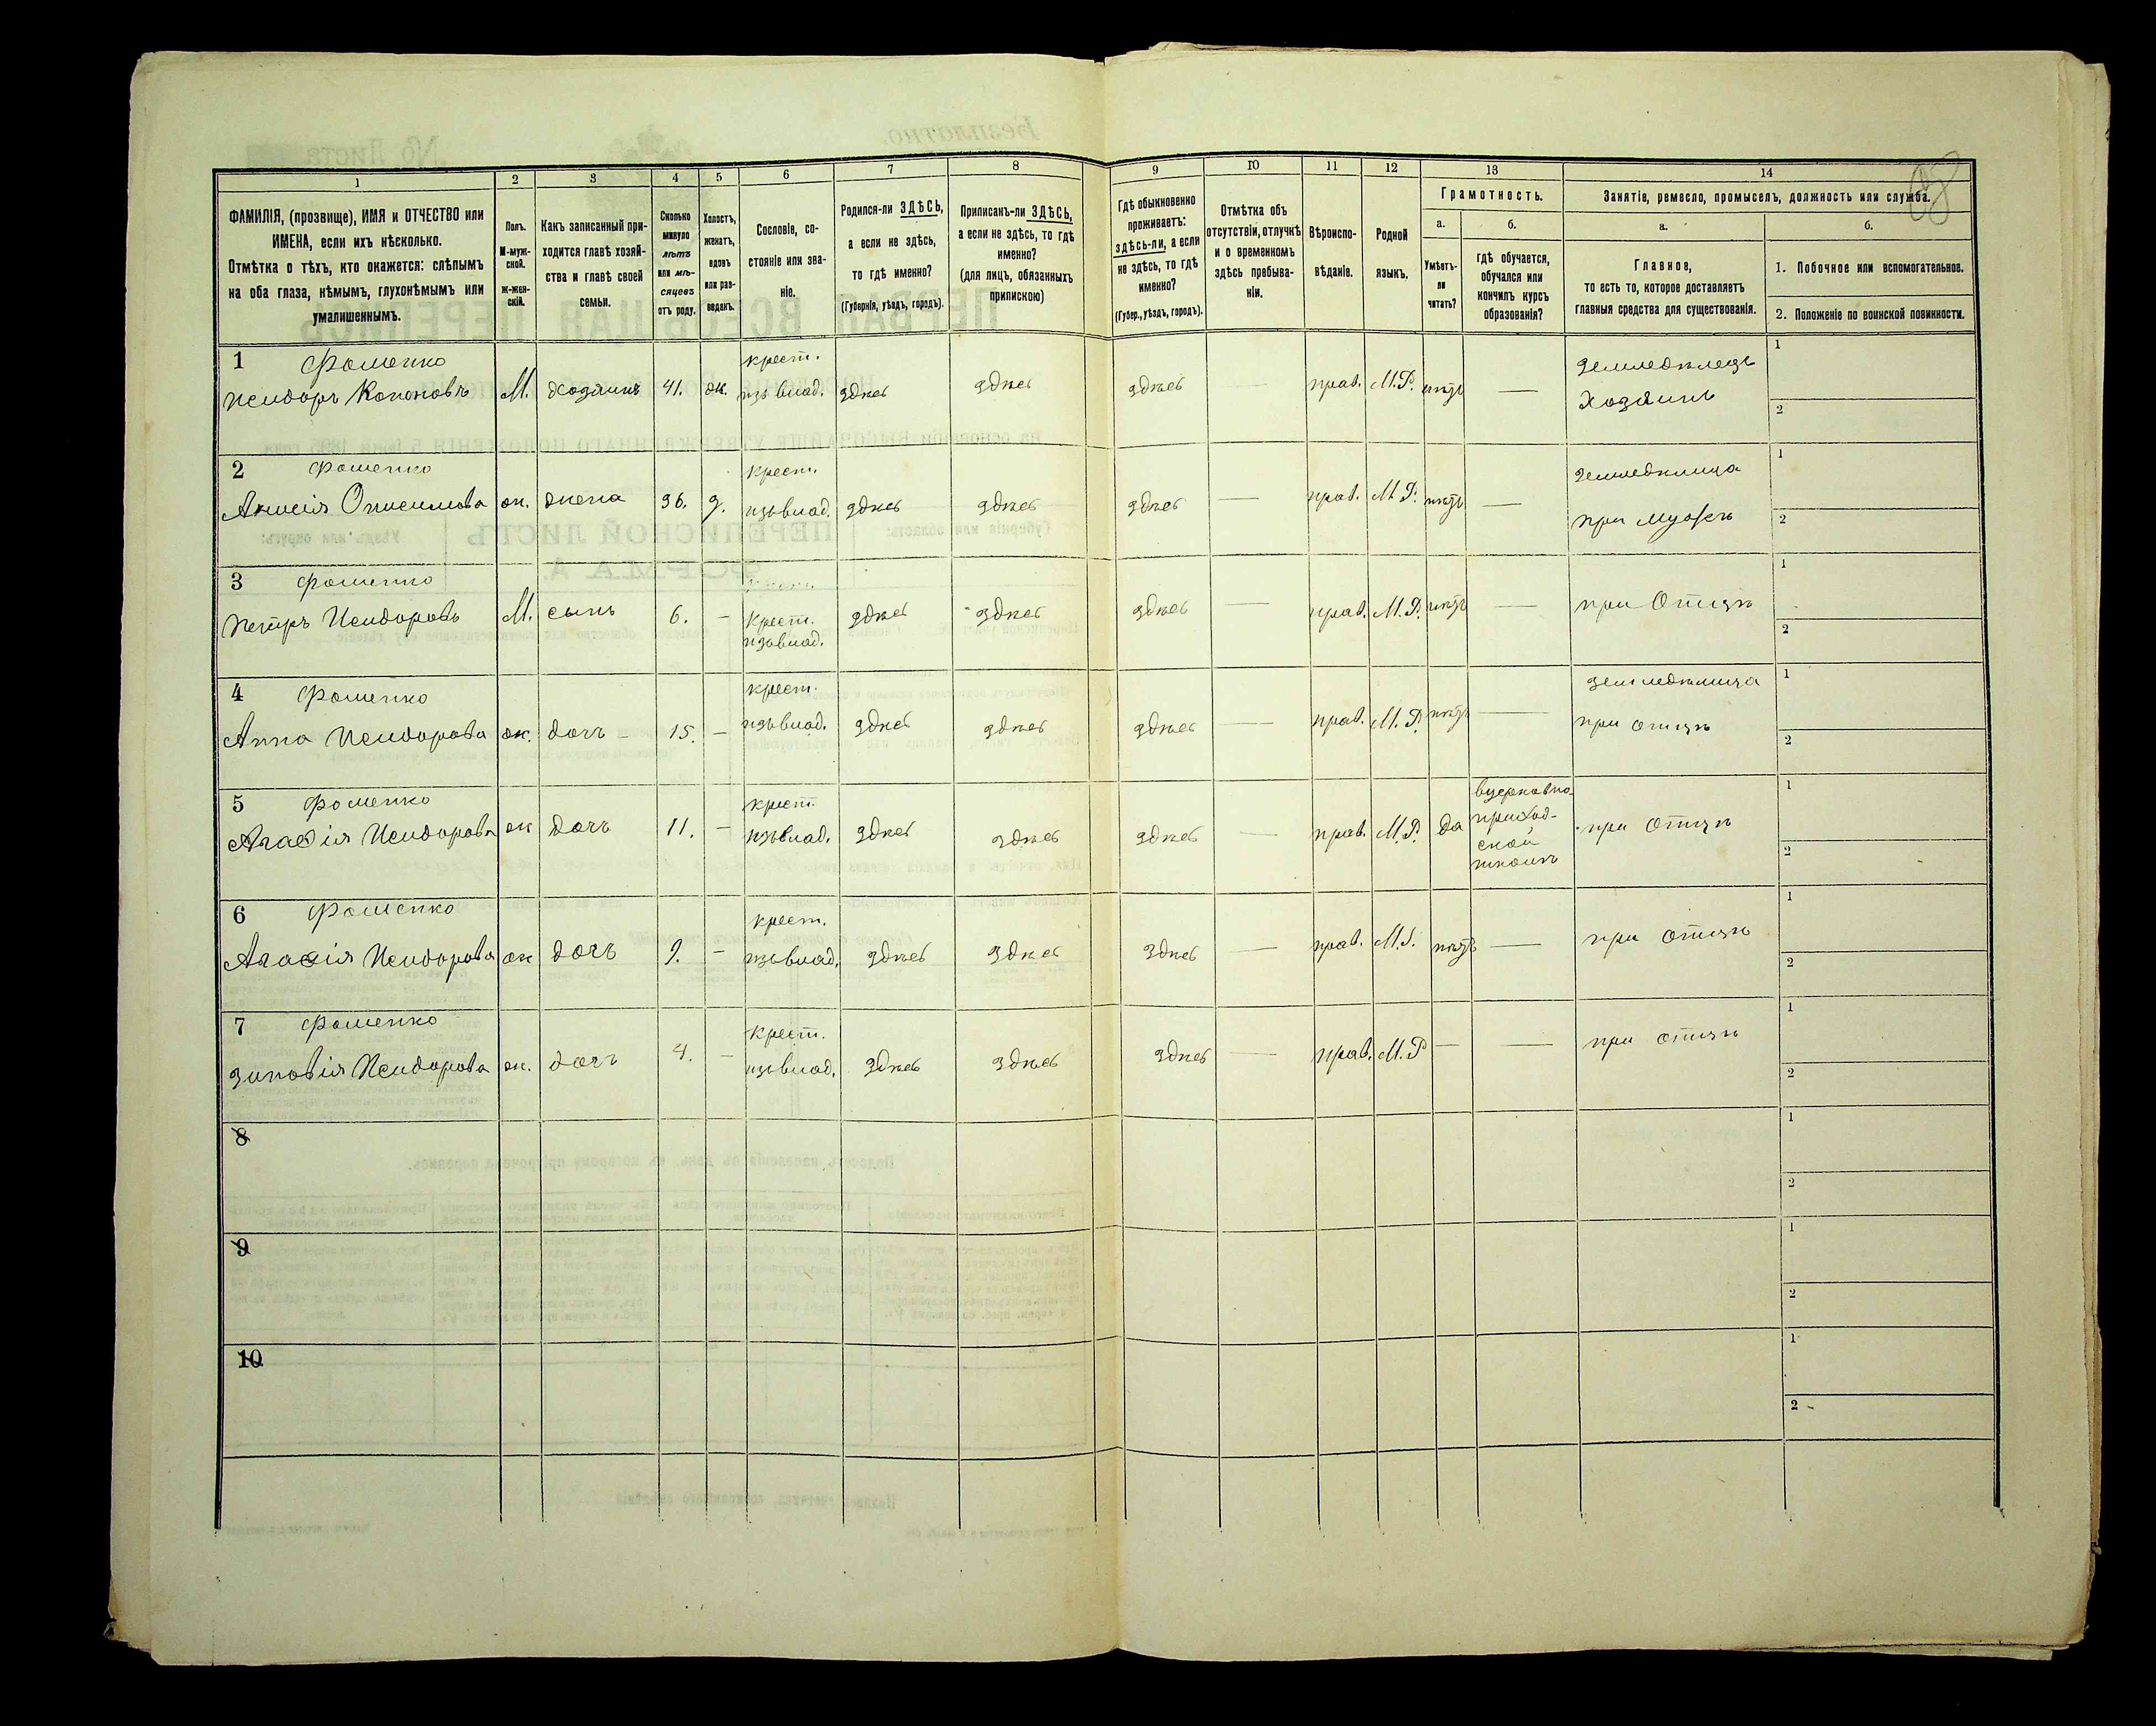 1 2 3 4 5 6 7 8 9 10 11 12 13 14
ФАМИЛІЯ, (прозвище), ИМЯ и ОТЧЕСТВО или
ИМЕНА, если ихъ нѣсколько.
Отмѣтка о тѣхъ, кто окажется: слѣпымъ
на оба глаза, нѣмымъ, глухонѣмымъ или
умалишеннымъ.
Полъ.
М-муж-
ской.
Ж-жен-
скій.
Какъ записанный при-
ходится главѣ хозяй-
ства и главѣ своей
семьи.
Сколько
минуло
лѣтъ
или мѣ-
сяцевъ
отъ роду.
Холостъ,
женатъ,
вдовъ
или раз-
веденъ.
Сословіе, со-
стояніе или зва-
ніе.
Родился-ли ЗДѢСЬ,
а если не здѣсь,
то гдѣ именно?
(Губернія, уѣздъ, городъ).
Приписанъ-ли ЗДѢСЬ,
а если не здѣсь, то гдѣ
именно?
(для лицъ, обязанныхъ
припискою)
Гдѣ обыкновенно
проживаетъ:
здѣсь-ли, а если
не здѣсь, то гдѣ
именно?
(Губер., уѣздъ, городъ).
Отмѣтка объ
отсутствіи, отлучкѣ
и о временномъ
здѣсь пребыва-
ніи.
Вѣроиспо-
вѣданіе.
Родной
языкъ.
Грамотность.
а.
Умѣетъ-
ли
читать?
б.
гдѣ обучается,
обучался или
кончилъ курсъ
образованія?
Занятіе, ремесло, промыселъ, должность или служба.
а.
Главное,
то есть то, которое доставляетъ
главныя средства для существованія.
б.
1. Побочное или вспомогательное.
2. Положеніе по воинской повинности.
1 Фоменко крест. Земледѣлецъ 1
Исидоръ Кононовъ М. Хозяинъ 41. ж. изъ влад. здѣсь здѣсь здѣсь — прав. М.Р. нѣтъ — Хозяинъ 2
2 Фоменко крест. Земледѣлица 1
Анисія Онисимова ж. жена 36. з. изъ влад. здѣсь здѣсь здѣсь — прав. М.Р. нѣтъ — при мужѣ 2
3 Фоменко 1
Петръ Исидоровъ М. сынъ 6. — Крест. здѣсь здѣсь здѣсь — прав. М.Р. нѣтъ — при Отцѣ
изъ влад. 2
4 Фоменко крест. земледѣлица 1
Анна Исидорова ж. дочь — 15. — изъ влад. здѣсь здѣсь здѣсь — прав. М.Р. нѣтъ — при отцѣ 2
5 Фоменко крест. въ церковно- 1
Агафія Исидорова ж дочь 11. — изъ влад. здѣсь здѣсь здѣсь — прав. М.Р. да приход- при отцѣ
ской
школѣ 2
6 Фоменко крест. 1
Агафія Исидорова ж дочь 9. — изъ влад. здѣсь здѣсь здѣсь — прав. М.Р. нѣтъ — при отцѣ 2
7 Фоменко крест. 1
Зиновія Исидорова ж. дочь 4. — изъ влад. здѣсь здѣсь здѣсь — прав. М.Р — — при отцѣ 2
8 1
2
9 1
2
10 1
2